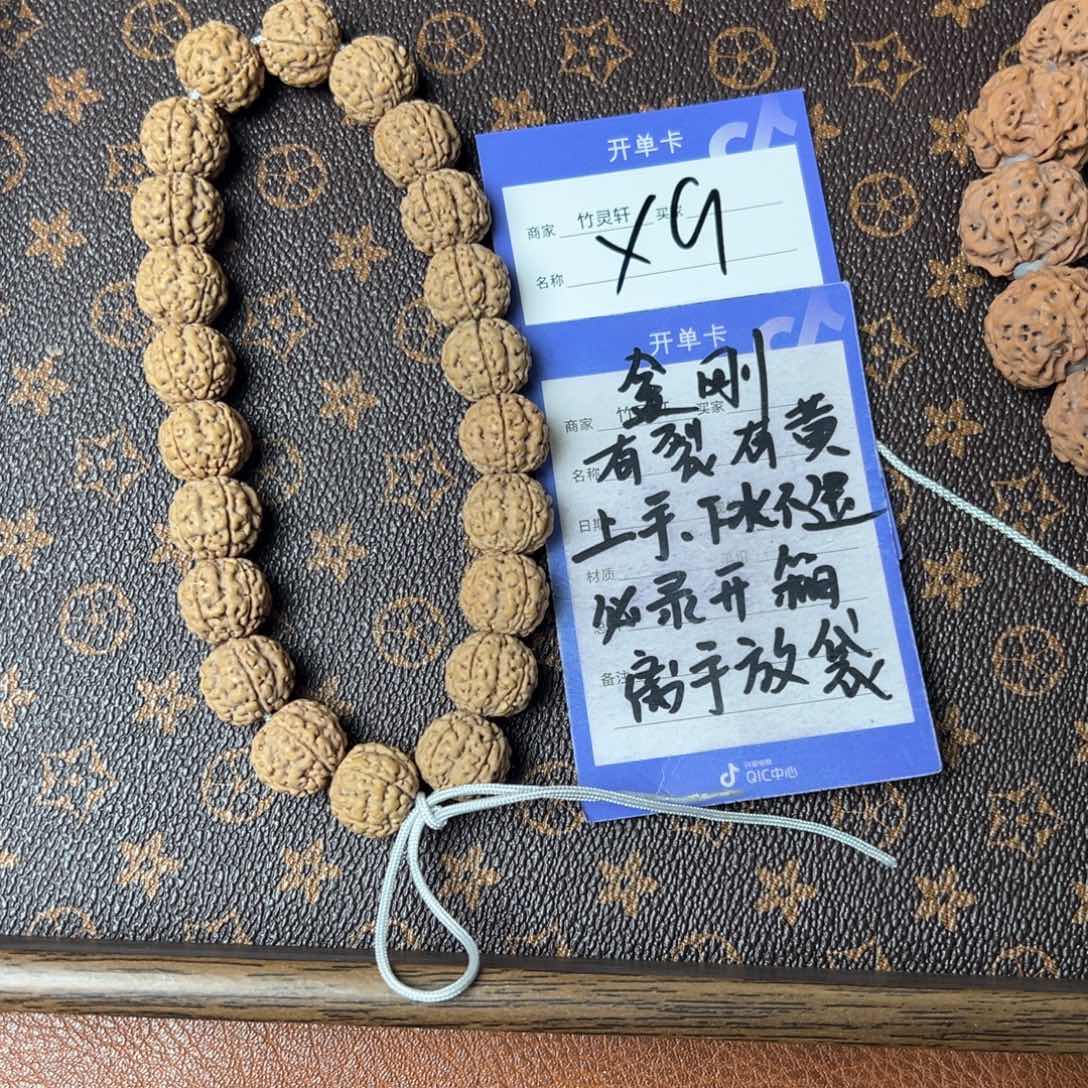 开单卡
商家 竹灵轩 买家
X9
名称
开单卡
金刚
商家 竹 买家
有裂有黄
名称
上手、下水不退
日期
材质
必录开箱
备注
离手放袋
抖音电商
QIC中心